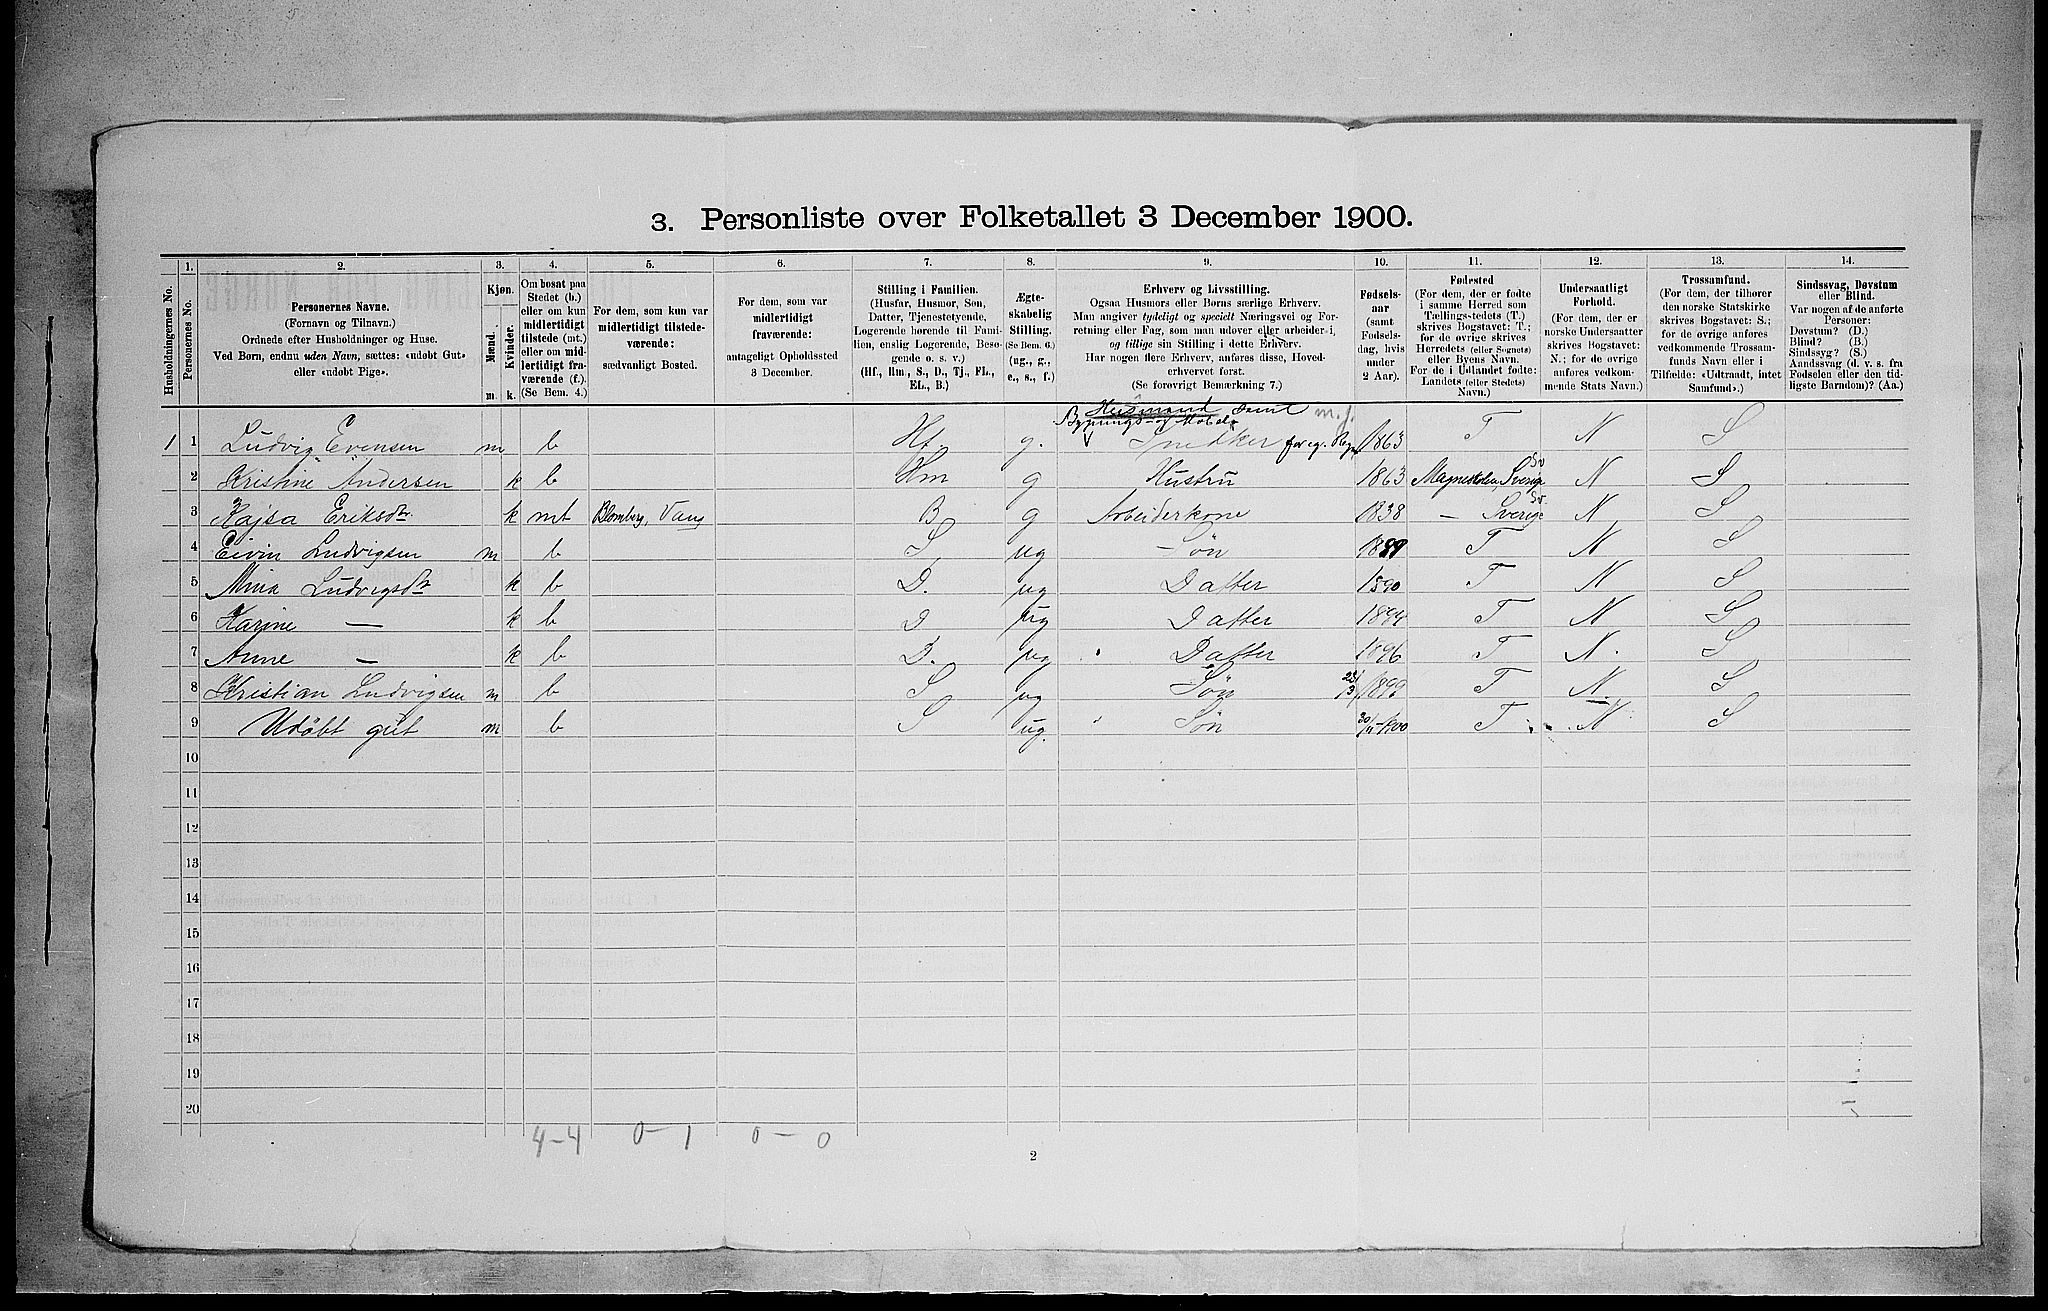 3. Personliste over Folketallet 3 December 1900.
Husholdningernes No.
1.
Personernes No.
2.
Personernes Navne.
(Fornavn og Tilnavn.)
Ordnede efter Husholdninger og Huse.
Ved Børn, endnu uden Navn, sættes: «udøbt Gut»
eller «udøbt Pige».
3.
Kjøn.
Mænd.
Kvinder.
m.
k.
4.
Om bosat paa
Stedet (b.)
eller om kun
midlertidigt
tilstede (mt.)
eller om mid-
lertidigt fra-
værende (f.).
(Se Bem. 4.)
5.
For dem, som kun var
midlertidigt tilstede-
værende:
sædvanligt Bosted.
6.
For dem, som var
midlertidigt
fraværende:
antageligt Opholdssted
3 December.
7.
Stilling i Familien.
(Husfar, Husmor, Søn,
Datter, Tjenestetyende,
Logerende hørende til Fami-
lien, enslig Logerende, Besø-
gende o. s. v.)
(Hf., Hm., S., D., Tj., FL.,
EL., B.)
8.
Ægte-
skabelig
Stilling.
(Se Bem. 6.)
(ug., g.,
e., s., f.)
9.
Erhverv og Livsstilling.
Ogsaa Husmors eller Børns særlige Erhverv.
Man angiver tydeligt og specielt Næringsvei og For-
retning eller Fag, som man udover eller arbeider i,
og tillige sin Stilling i dette Erhverv.
Har nogen flere Erhverv, anføres disse, Hoved-
erhvervet først.
(Se forøvrigt Bemærkning 7.)
10.
Fødsels-
aar
(samt
Fødsels-
dag, hvis
under
2 Aar.)
11.
Fødested
(For dem, der er fødte
i samme Herred som
Tællings-stedets (T.)
skrives Bogstavet: T.;
for de øvrige skrives
Herredets (eller Sognets)
eller Byens Navn.
For de i Udlandet fødte:
Landets (eller Stedets)
Navn.)
12.
Undersaatligt
Forhold.
(For dem, der er
norske Undersaatter
skrives Bogstavet:
N.; for de øvrige
anføres vedkom-
mende Stats Navn.)
13.
Trossamfund.
(For dem, der tilhører
den norske Statskirke
skrives Bogstavet: S.;
for de øvrige anføres
vedkommende Trossam-
funds Navn eller i
Tilfælde: «Udtraadt, intet
Samfund».)
14.
Sindssvag, Døvstum
eller Blind.
Var nogen af de anførte
Personer:
Døvstum? (D.)
Blind? (B.)
Sindssyg? (S.)
Aandssvag (d. v. s. fra
Fødselen eller den tid-
ligste Barndom)? (Aa.)
Husmand samt m. j.
Bygnings- og Møbel-
1 1 Ludvig Evensen m b Hf. g. Snedker for eg. Regn. 1863 T N S
2 Kristine Andersen k b Hm g Hustru 1863 Sverige Sv N S
3 Kajsa Eriksdtr k mt Blomberg, Vang B g Arbeiderkone 1838 — Sverige Sv N S
4 Eivin Ludvigsen m b S ug Søn 1889 T N S
5 Mina Ludvigsdtr k b D. ug Datter 1890 T N S
6 Karine — k b D ug Datter 1894 T N S
7 Anne — k b D. ug Datter 1896 T N. S
8 Kristian Ludvigsen m b S ug Søn 1899 T N. S
9 Udøbt gut m b S ug. Søn 30/11-1900 T N S
10
11
12
13
14
15
16
17
18
19
20
4-4 0-1 0-0
2